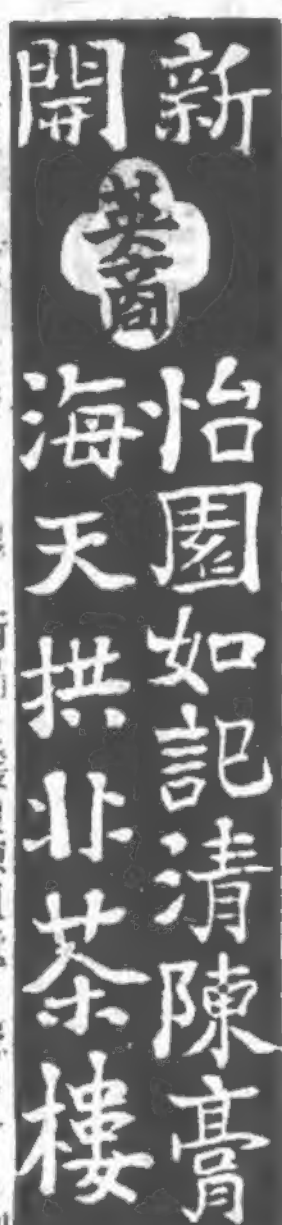 新開
英商
怡園如記清陳膏
海天拱北茶樓